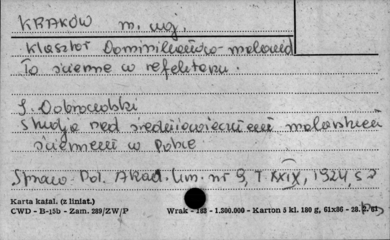 KRAKÓW m. woj.
Klasztor Dominikanów - malowid
ło ścienne w refektarzu.
J. Dobrowolski
Studja nad średniowiecznem malarstwem
ściennem w Polsce
Spraw. Pol. Akad. Um. nr 9, T XXIX, 1924, s 2
Karta katal. (z liniat.)
CWD - B-15b - Zam. 289/ZW/P Wrak - - 1.200.000 - Karton 5 kl. 180 g, 61x86 -